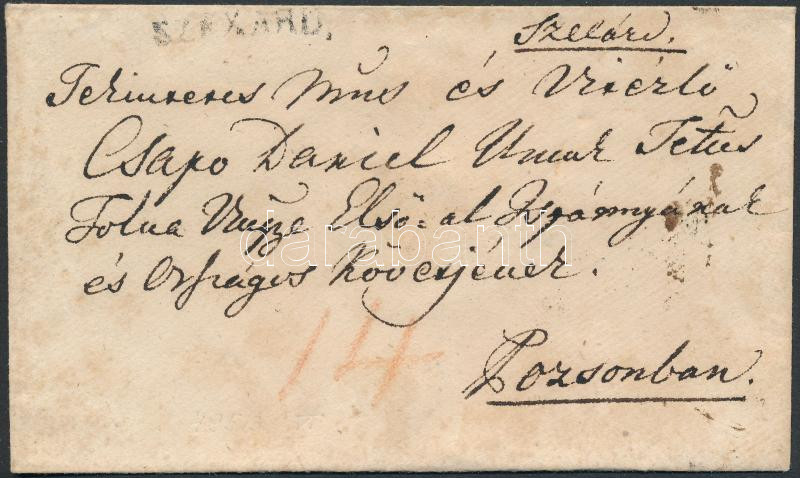 SZEXARD.
Szelárd.
Tekintetes Nms és Vitézlő
Csapo Daniel Urnak Tettes
Tolna Vmgye Első=al Ispánnyának
és Országos Követjének.
14
Pozsonban.
darabanth